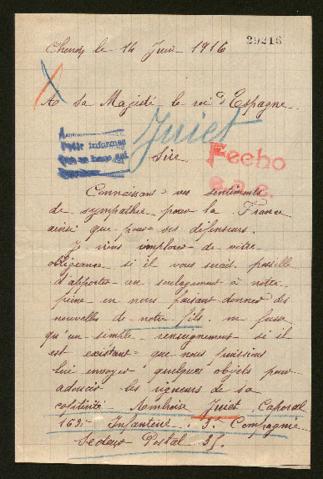 29216
le 14 Juin 1916
A Sa Majesté le roi d'Espagne
Juiet
Pedir informes
Fecho
Sire
Connaissant vos sentiments
de sympathie pour la France
ainsi que pour ses défenseurs.
Je viens implorer de votre
obligeance si il vous serait possible
d'apporter un soulagement à notre
peine en nous faisant donner des
nouvelles de notre fils, ne fusse
qu'un simple renseignement si il
est existant que nous puissions
lui envoyer quelques objets pour
adoucir les rigueurs de sa
captivité Ambroise Juiet Caporal
163e Infanterie. 3e Compagnie
Secteur Postal